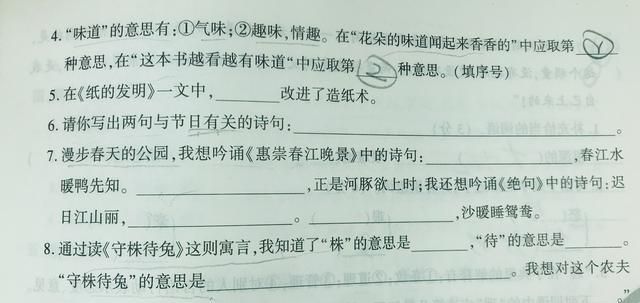 4.“味道”的意思有:①气味;②趣味,情趣。在“花朵的味道闻起来香香的”中应取第
种意思,在“这本书越看越有味道“中应取第 2 种意思。(填序号)
5.在《纸的发明》一文中,________改进了造纸术。
6.请你写出两句与节日有关的诗句:________________。
7.漫步春天的公园,我想吟诵《惠崇春江晚景》中的诗句:________,春江水
暖鸭先知。________________,正是河豚欲上时;我还想吟诵《绝句》中的诗句:迟
日江山丽,________________。________________,沙暖睡鸳鸯。
8.通过读《守株待兔》这则寓言,我知道了“株”的意思是________,“待”的意思是________。
“守株待兔”的意思是________________________________。我想对这个农夫